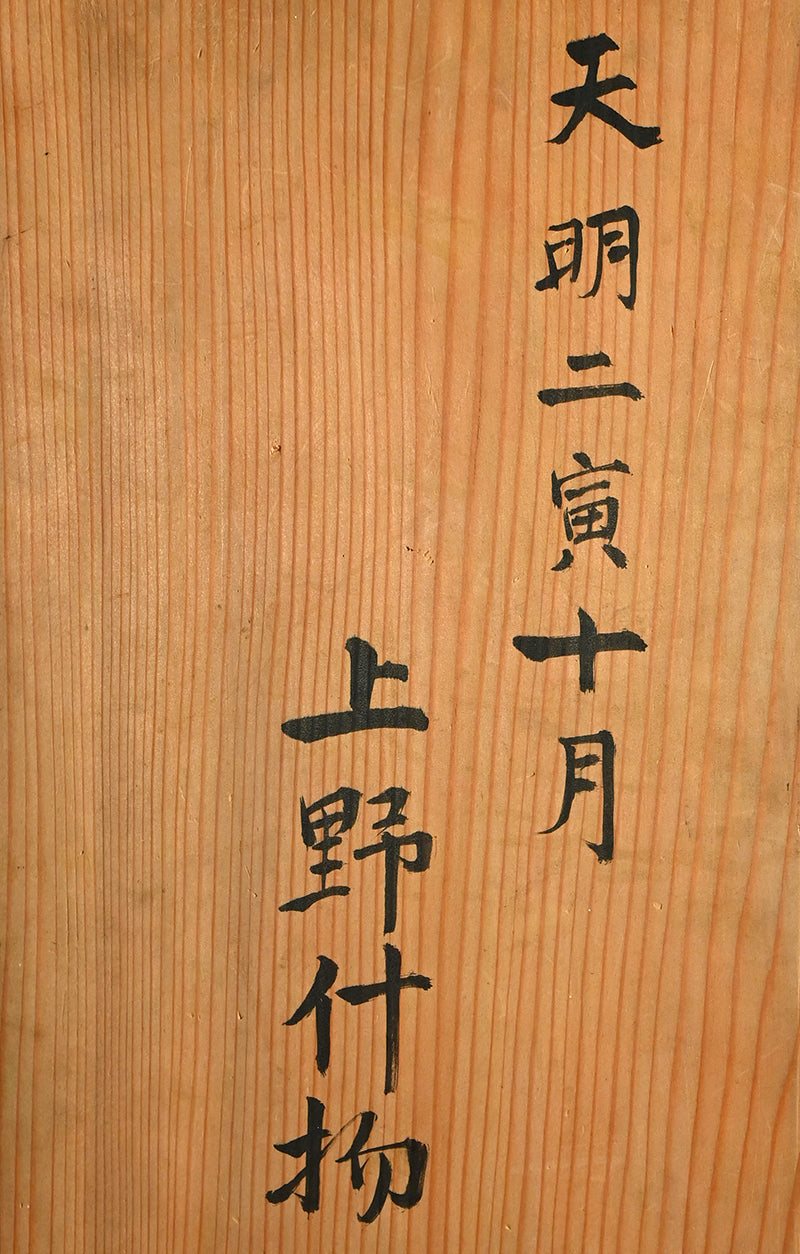 天明二寅十月
上野什物